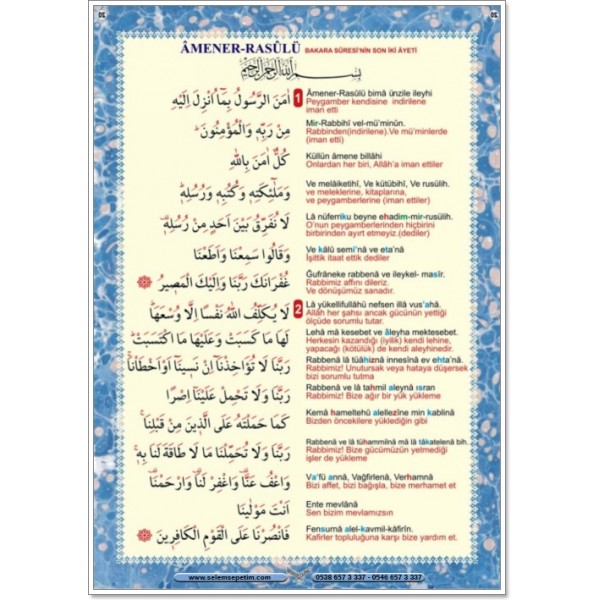 30 30
ÂMENER-RASÛLÜ BAKARA SÛRESİ'NİN SON İKİ ÂYETİ
بِسْمِ اللهِ الرَّحْمٰنِ الرَّحِيمِ
اٰمَنَ الرَّسُولُ بِمَٓا اُنْزِلَ اِلَيْهِ
1
Âmener-Rasûlü bimâ ünzile ileyhi
Peygamber kendisine indirilene
iman etti
مِنْ رَبِّه۪ وَالْمُؤْمِنُونَۜ
Mir-Rabbihî vel-mü'minûn.
Rabbinden(indirilene).Ve mü'minlerde
(iman etti)
كُلٌّ اٰمَنَ بِاللهِ
Küllün âmene billâhi
Onlardan her biri, Allâh'a iman ettiler
وَمَلٰٓئِكَتِه۪ وَكُتُبِه۪ وَرُسُلِه۪ۜ
Ve melâiketihî, Ve kütübihî, Ve rusülih.
ve meleklerine, kitaplarına,
ve peygamberlerine (iman ettiler)
لَا نُفَرِّقُ بَيْنَ اَحَدٍ مِنْ رُسُلِه۪ۜ
Lâ nüferriku beyne ehadim-mir-rusülih.
O'nun peygamberlerinden hiçbirini
birbirinden ayırt etmeyiz.(dediler)
وَقَالُوا سَمِعْنَا وَاَطَعْنَا
Ve kâlû semi'nâ ve eta'nâ
İşittik itaat ettik dediler
غُفْرَانَكَ رَبَّنَا وَاِلَيْكَ الْمَص۪يرُ
Ğufrâneke rabbenâ ve ileykel- masîr.
Rabbimiz affını dileriz.
Ve dönüşümüz sanadır.
لَا يُكَلِّفُ اللهُ نَفْسًا اِلَّا وُسْعَهَاۜ
2
Lâ yükellifullâhü nefsen illâ vus'ahâ.
Allâh her şahsı ancak gücünün yettiği
ölçüde sorumlu tutar.
لَهَا مَا كَسَبَتْ وَعَلَيْهَا مَا اكْتَسَبَتْۜ
Lehâ mâ kesebet ve âleyha mektesebet.
Herkesin kazandığı (iyilik) kendi lehine,
yapacağı (kötülük) de kendi aleyhinedir.
رَبَّنَا لَا تُؤَاخِذْنَٓا اِنْ نَس۪ينَٓا اَوْ اَخْطَأْنَاۚ
Rabbenâ lâ tüâhiznâ innesînâ ev ehta'nâ.
Rabbimiz! Unutursak veya hataya düşersek
bizi sorumlu tutma
رَبَّنَا وَلَا تَحْمِلْ عَلَيْنَٓا اِصْرًا
Rabbenâ ve lâ tahmil aleynâ ısran
Rabbimiz! Bize ağır bir yük yükleme
كَمَا حَمَلْتَهُ عَلَى الَّذ۪ينَ مِنْ قَبْلِنَاۚ
Kemâ hameltehü alellezîne min kablinâ
Bizden öncekilere yüklediğin gibi
رَبَّنَا وَلَا تُحَمِّلْنَا مَا لَا طَاقَةَ لَنَا بِه۪ۚ
Rabbenâ ve lâ tühammilnâ mâ lâ tâkatelenâ bih.
Rabbimiz! Bize gücümüzün yetmediği
işler de yükleme
وَاعْفُ عَنَّا۠ وَاغْفِرْ لَنَا۠ وَارْحَمْنَا۠
Va'fü annâ, Vağfirlenâ, Verhamnâ
Bizi affet, bizi bağışla, bize merhamet et
اَنْتَ مَوْلٰينَا
Ente mevlânâ
Sen bizim mevlamızsın
فَانْصُرْنَا عَلَى الْقَوْمِ الْكَافِر۪ينَ
Fensurnâ alel-kavmil-kâfirîn.
Kafirler topluluğuna karşı bize yardım et.
www.selemsepetim.com 0538 657 3 337 - 0546 657 3 337